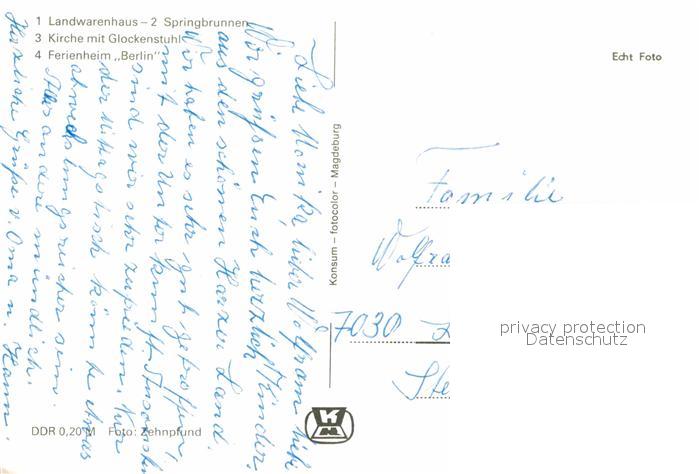 1 Landwarenhaus – 2 Springbrunnen
3 Kirche mit Glockenstuhl
4 Ferienheim „Berlin"
Echt Foto
Liebe Monika, lieber Wolfram liebe
Kinder.
Wir grüßen Euch herzlich
aus dem schönen Harzer Land.
Wir haben es sehr gut getroffen,
mit der Unterkunft
sind wir sehr zufrieden. Nur
der Mittagstisch könnte etwas
abwechslungsreicher sein.
Alles andere mündlich.
Herzliche Grüße v. Oma u. Hann.
Konsum – fotocolor – Magdeburg
Familie
Wolfra
7030
Ste
privacy protection
Datenschutz
DDR 0,20 M Foto: Zehnpfund